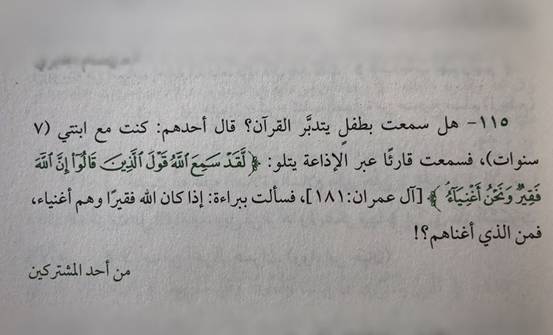 ١١٥- هل سمعت بطفلٍ يتدبَّر القرآن؟ قال أحدهم: كنت مع ابنتي (٧
سنوات)، فسمعت قارئًا عبر الإذاعة يتلو: ﴿لَّقَدْ سَمِعَ ٱللَّهُ قَوْلَ ٱلَّذِينَ قَالُوٓا۟ إِنَّ ٱللَّهَ
فَقِيرٌ وَنَحْنُ أَغْنِيَآءُ﴾ [آل عمران:١٨١]، فسألت ببراءة: إذا كان الله فقيرًا وهم أغنياء،
فمن الذي أغناهم؟!
من أحد المشتركين